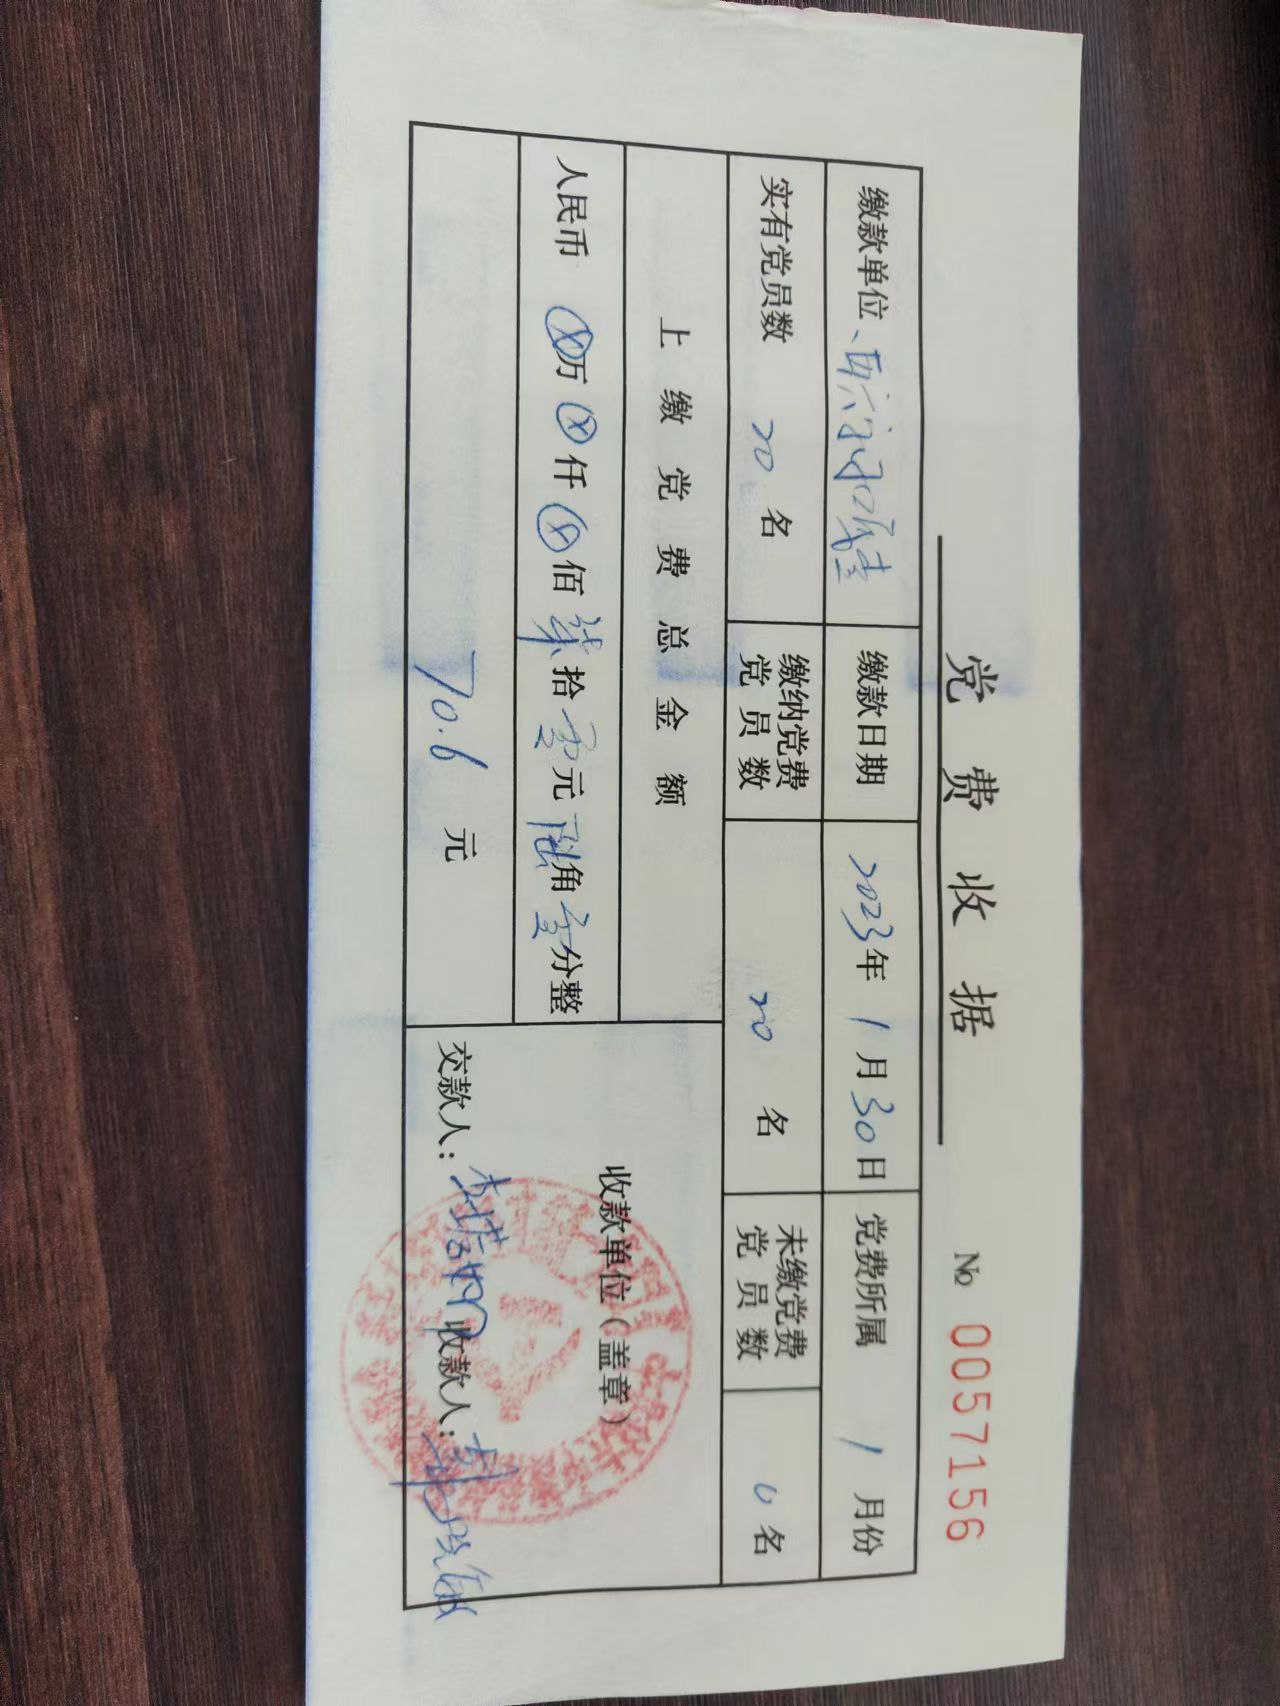 党费收据
No 0057156
缴款单位 缴款日期 2023年1月30日 党费所属 1月份
实有党员数 20名 缴纳党费党员数 20名 未缴党费党员数 0名
上缴党费总金额
人民币 ⊗万⊗仟⊗佰柒拾零元陆角零分整
收款单位（盖章）
70.6元
交款人： 收款人：